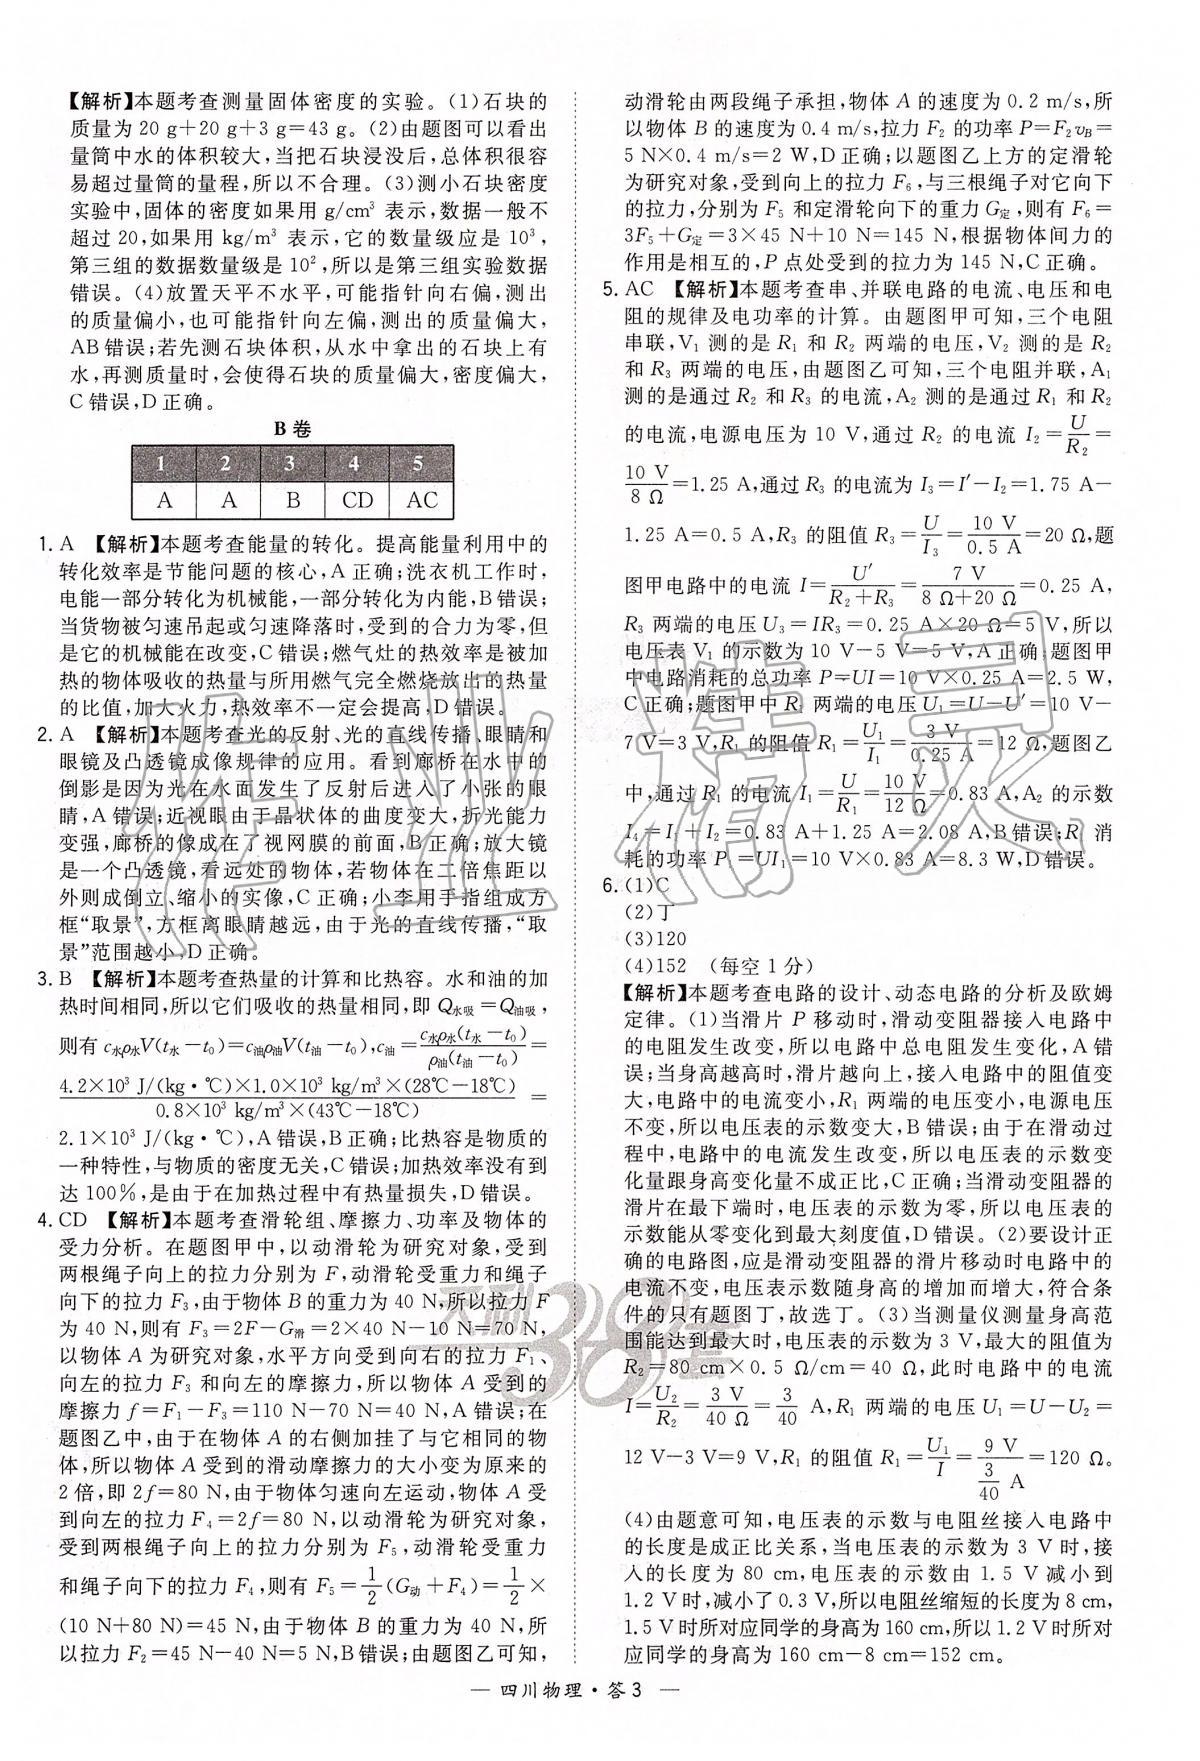 【解析】本题考查测量固体密度的实验。(1)石块的
质量为 20 g+20 g+3 g=43 g。(2)由题图可以看出
量筒中水的体积较大,当把石块浸没后,总体积很容
易超过量筒的量程,所以不合理。(3)测小石块密度
实验中,固体的密度如果用 g/cm³ 表示,数据一般不
超过 20,如果用 kg/m³ 表示,它的数量级应是 10³,
第三组的数据数量级是 10²,所以是第三组实验数据
错误。(4)放置天平不水平,可能指针向右偏,测出
的质量偏小,也可能指针向左偏,测出的质量偏大,
AB错误;若先测石块体积,从水中拿出的石块上有
水,再测质量时,会使得石块的质量偏大,密度偏大,
C 错误,D 正确。
B 卷
1 2 3 4 5
A A B CD AC
1. A 【解析】本题考查能量的转化。提高能量利用中的
转化效率是节能问题的核心,A 正确;洗衣机工作时,
电能一部分转化为机械能,一部分转化为内能,B错误;
当货物被匀速吊起或匀速降落时,受到的合力为零,但
是它的机械能在改变,C 错误;燃气灶的热效率是被加
热的物体吸收的热量与所用燃气完全燃烧放出的热量
的比值,加大火力,热效率不一定会提高,D 错误。
2. A 【解析】本题考查光的反射、光的直线传播、眼睛和
眼镜及凸透镜成像规律的应用。看到廊桥在水中的
倒影是因为光在水面发生了反射后进入了小张的眼
睛,A 错误;近视眼由于晶状体的曲度变大,折光能力
变强,廊桥的像成在了视网膜的前面,B 正确;放大镜
是一个凸透镜,看远处的物体,若物体在二倍焦距以
外则成倒立、缩小的实像,C 正确;小李用手指组成方
框“取景”,方框离眼睛越远,由于光的直线传播,“取
景”范围越小,D 正确。
3. B 【解析】本题考查热量的计算和比热容。水和油的加
热时间相同,所以它们吸收的热量相同,即 Q水吸=Q油吸,
则有 c水ρ水V(t水-t₀)=c油ρ油V(t油-t₀),c油=c水ρ水(t水-t₀)/ρ油(t油-t₀)=
4.2×10³ J/(kg·℃)×1.0×10³ kg/m³×(28℃-18℃)/0.8×10³ kg/m³×(43℃-18℃)=
2.1×10³ J/(kg·℃),A 错误,B 正确;比热容是物质的
一种特性,与物质的密度无关,C 错误;加热效率没有到
达 100%,是由于在加热过程中有热量损失,D 错误。
4. CD 【解析】本题考查滑轮组、摩擦力、功率及物体的
受力分析。在题图甲中,以动滑轮为研究对象,受到
两根绳子向上的拉力分别为 F,动滑轮受重力和绳子
向下的拉力 F₃,由于物体 B 的重力为 40 N,所以拉力 F
为 40 N,则有 F₃=2F-G滑=2×40 N-10 N=70 N,
以物体 A 为研究对象,水平方向受到向右的拉力 F₁、
向左的拉力 F₃ 和向左的摩擦力,物体 A 受到的
摩擦力 f=F₁-F₃=110 N-70 N=40 N,A 错误;在
题图乙中,由于在物体 A 的右侧加挂了与它相同的物
体,所以物体 A 受到的滑动摩擦力的大小变为原来的
2 倍,即 2f=80 N,由于物体匀速向左运动,物体 A 受
到向左的拉力 F₄=2f=80 N,以动滑轮为研究对象,
受到两根绳子向上的拉力分别为 F₅,动滑轮受重力
和绳子向下的拉力 F₄,则有 F₅=1/2(G动+F₄)=1/2×
(10 N+80 N)=45 N,由于物体 B 的重力为 40 N,所
以拉力 F₂=45 N-40 N=5 N,B 错误;由题图乙可知,
动滑轮由两段绳子承担,物体 A 的速度为 0.2 m/s,所
以物体 B 的速度为 0.4 m/s,拉力 F₂ 的功率 P=F₂vB=
5 N×0.4 m/s=2 W,D 正确;以题图乙上方的定滑轮
为研究对象,受到向上的拉力 F₆,与三根绳子对它向下
的拉力,分别为 F₅ 和定滑轮向下的重力 G定,则有 F₆=
3F₅+G定=3×45 N+10 N=145 N,根据物体间力的
作用是相互的,P 点处受到的拉力为 145 N,C 正确。
5. AC 【解析】本题考查串、并联电路的电流、电压和电
阻的规律及电功率的计算。由题图甲可知,三个电阻
串联,V₁ 测的是 R₁ 和 R₂ 两端的电压,V₂ 测的是 R₂
和 R₃ 两端的电压,由题图乙可知,三个电阻并联,A₁
测的是通过 R₂ 和 R₃ 的电流,A₂ 测的是通过 R₁ 和 R₂
的电流,电源电压为 10 V,通过 R₂ 的电流 I₂=U/R₂=
10 V/8 Ω=1.25 A,通过 R₃ 的电流为 I₃=I′-I₂=1.75 A-
1.25 A=0.5 A,R₃ 的阻值 R₃=U/I₃=10 V/0.5 A=20 Ω,题
图甲电路中的电流 I=U′/(R₂+R₃)=7 V/(8 Ω+20 Ω)=0.25 A,
R₃ 两端的电压 U₃=IR₃=0.25 A×20 Ω=5 V,所以
电压表 V₁ 的示数为 10 V-5 V=5 V,A 正确;题图甲
中电路消耗的总功率 P=UI=10 V×0.25 A=2.5 W,
C 正确;题图甲中 R₁ 两端的电压 U₁=U-U′=10 V-
7 V=3 V,R₁ 的阻值 R₁=U₁/I₁=3 V/0.25 A=12 Ω,题图乙
中,通过 R₁ 的电流 I₁=U/R₁=10 V/12 Ω=0.83 A,A₂ 的示数
I₄=I₁+I₂=0.83 A+1.25 A=2.08 A,B 错误;R₁ 消
耗的功率 P₁=UI₁=10 V×0.83 A=8.3 W,D 错误。
6. (1)C
(2)丁
(3)120
(4)152 (每空 1 分)
【解析】本题考查电路的设计、动态电路的分析及欧姆
定律。(1)当滑片 P 移动时,滑动变阻器接入电路中
的电阻发生改变,所以电路中总电阻发生变化,A 错
误;当身高越高时,滑片越向上,接入电路中的阻值变
大,电路中的电流变小,R₁ 两端的电压变小,电源电压
不变,所以电压表的示数变大,B 错误;由于在滑动过
程中,电路中的电流发生改变,所以电压表的示数变
化量跟身高变化量不成正比,C 正确;当滑动变阻器的
滑片在最下端时,电压表的示数为零,所以电压表的
示数能从零变化到最大刻度值,D 错误。(2)要设计正
确的电路图,应是滑动变阻器的滑片移动时电路中的
电流不变,电压表示数随身高的增加而增大,符合条
件的只有题图丁,故选丁。(3)当测量仪测量身高范
围能达到最大时,电压表的示数为 3 V,最大的阻值为
R₂=80 cm×0.5 Ω/cm=40 Ω,此时电路中的电流
I=U₂/R₂=3 V/40 Ω=3/40 A,R₁ 两端的电压 U₁=U-U₂=
12 V-3 V=9 V,R₁ 的阻值 R₁=U₁/I=9 V/(3/40 A)=120 Ω。
(4)由题意可知,电压表的示数与电阻丝接入电路中
的长度是成正比关系,当电压表的示数为 3 V 时,接
入的长度为 80 cm,电压表的示数由 1.5 V 减小到
1.2 V 时,减小了 0.3 V,所以电阻丝缩短的长度为 8 cm,
1.5 V 时所对应同学的身高为 160 cm,所以 1.2 V 时所对
应同学的身高为 160 cm-8 cm=152 cm。
— 四川物理·答 3 —
作业精灵
天利38套